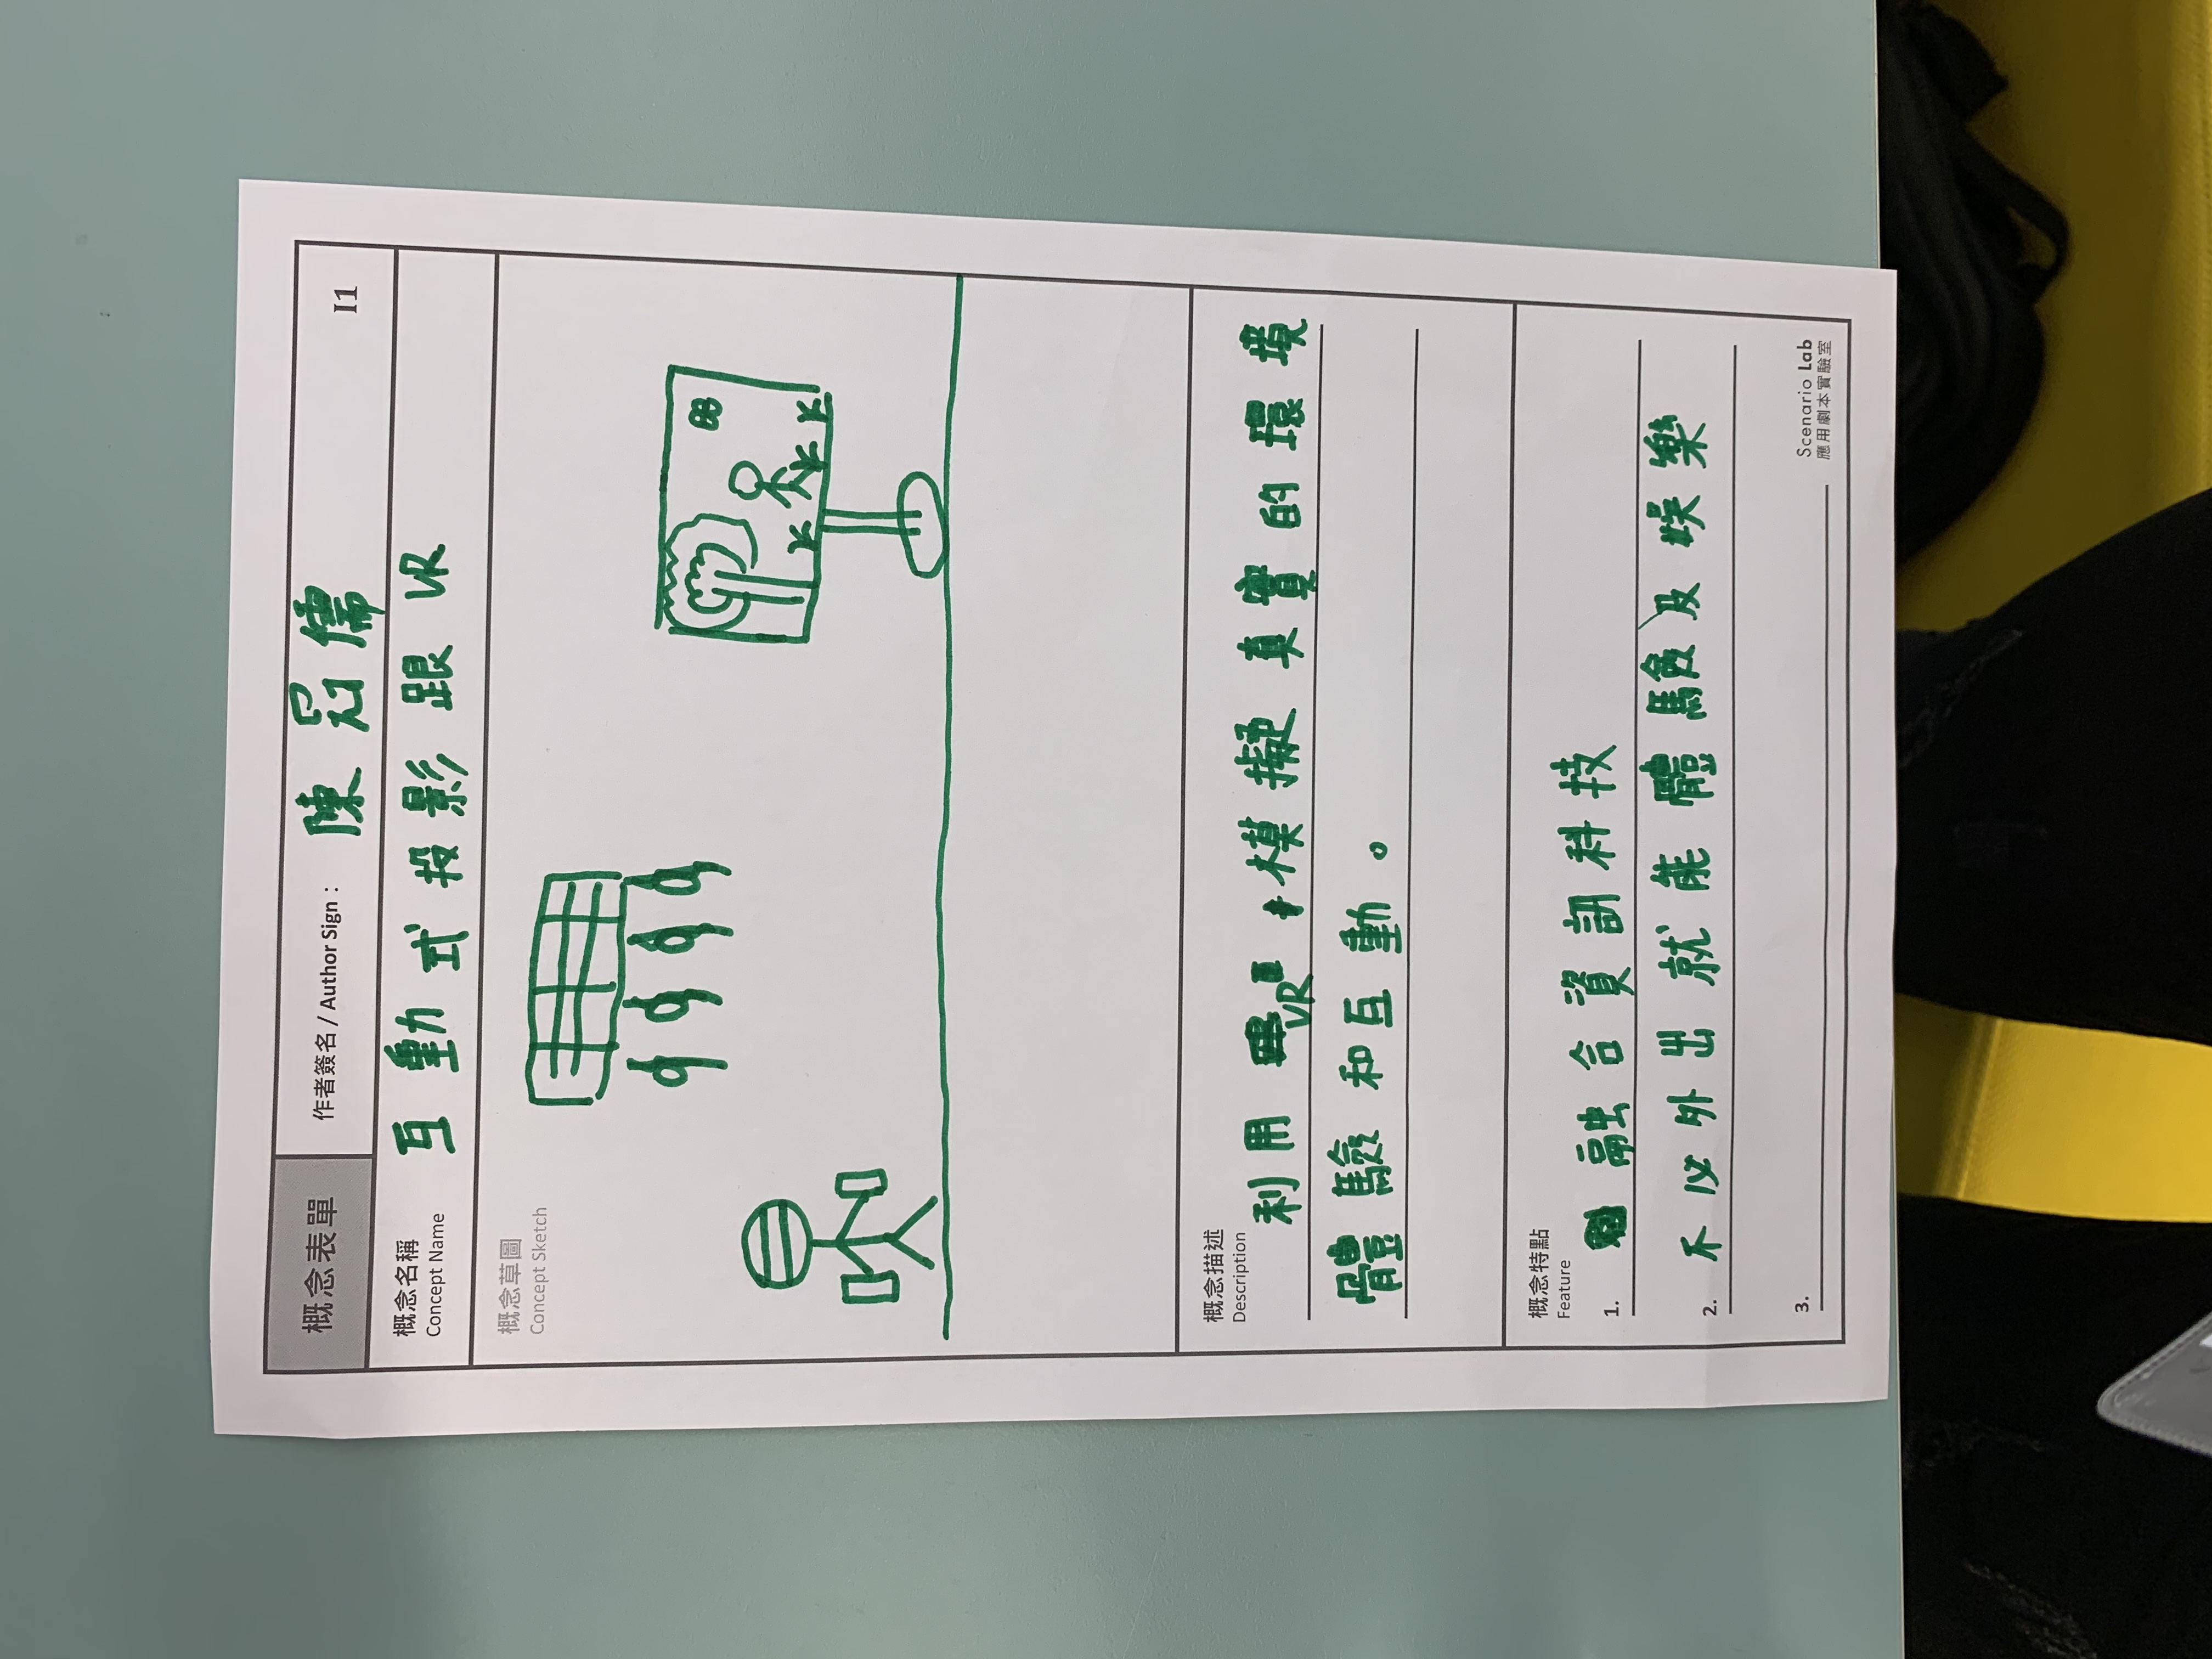 概念表單
作者簽名 / Author Sign： 陳冠儒
I1
概念名稱
Concept Name
互動式投影跟VR
概念草圖
Concept Sketch
概念描述
Description
利用VR模擬真實的環境
體驗和互動。
概念特點
Feature
1. 融合資訊科技
2. 不必外出就能體驗及娛樂
3.
Scenario Lab
應用劇本實驗室